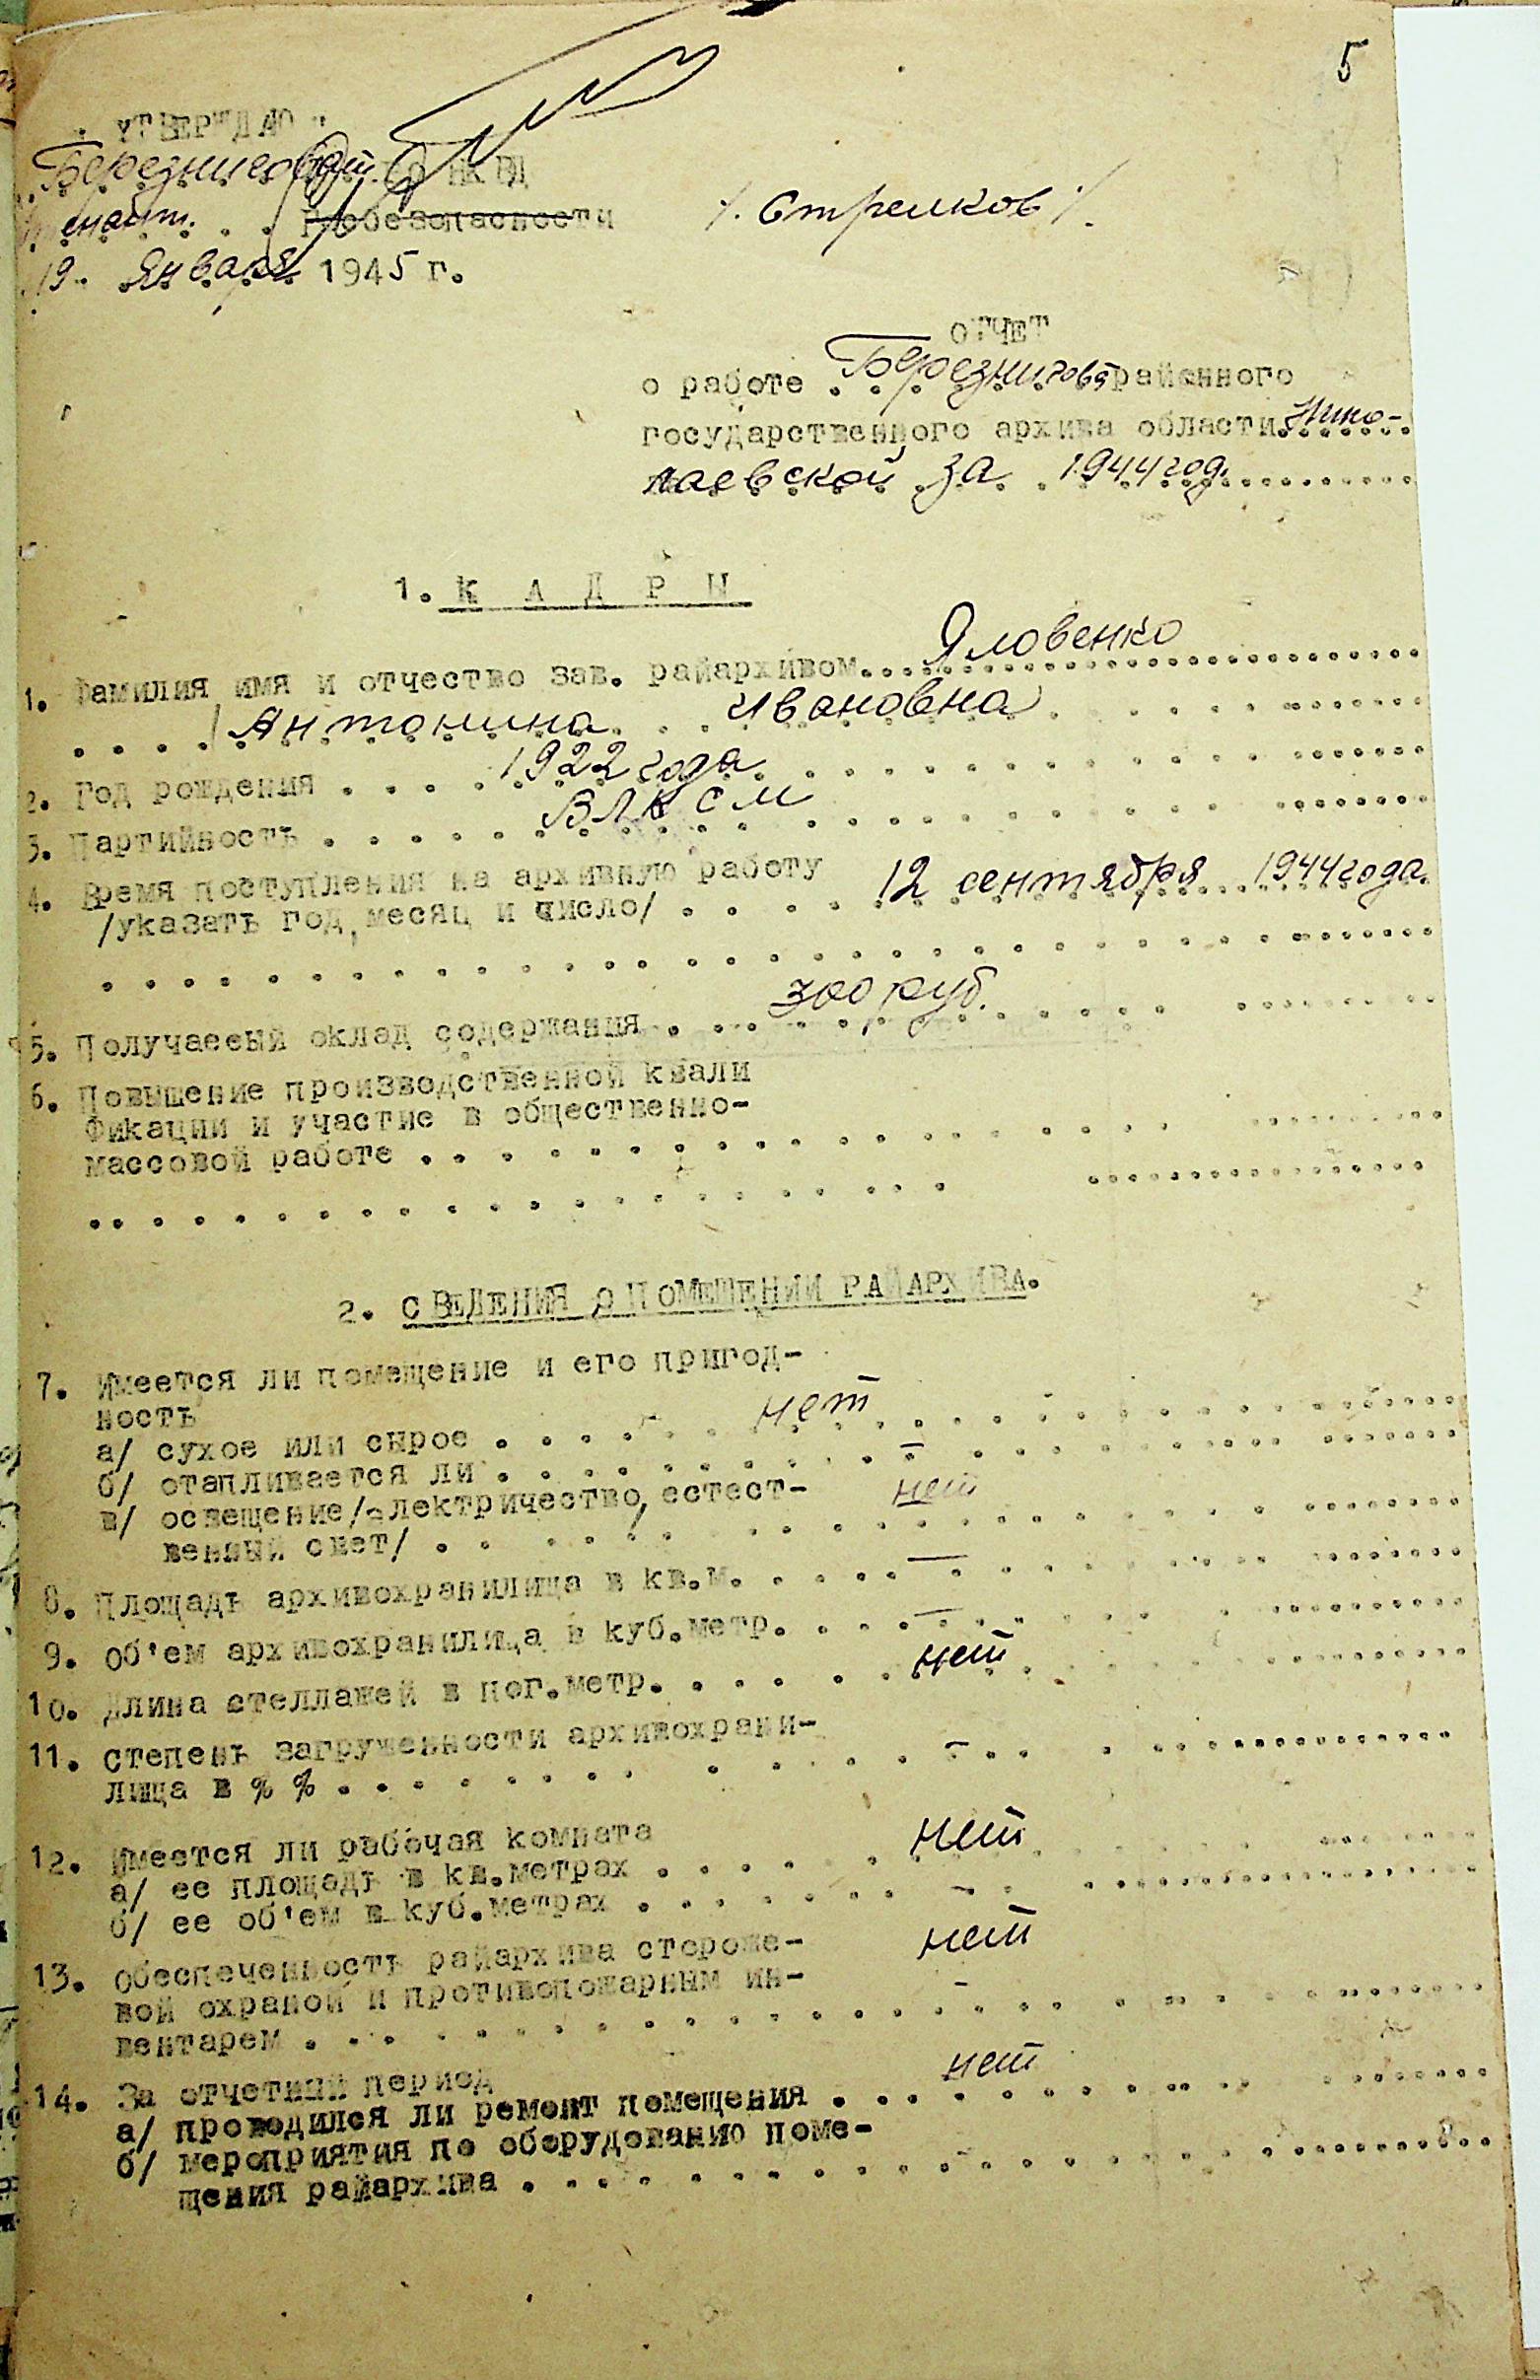 5
"УТВЕРЖДАЮ"
НКВД
Лейтенант. . . Госбезопасности
/. Стрелков /.
19. Января 1945 г.
ОТЧЕТ
о работе . Березнеговат районного
государственного архива области Нико-
лаевской за 1944 год.
1. К А Д Р Ы
1. Фамилия имя и отчество зав. райархивом Яловенко
Антонина Ивановна
2. Год рождения . . . . 1922 года
3. Партийность . . . . . ВЛКСМ
4. Время поступления на архивную работу
/указать год, месяц и число/ . . . . 12 сентября 1944 года.
5. Получаеемый оклад содержания . . . 300 руб.
6. Повышение производственной квали
фикации и участие в общественно-
массовой работе . . . . .
2. СВЕДЕНИЯ О ПОМЕЩЕНИИ РАЙАРХИВА.
7. Имеется ли помещение и его пригод-
ность
а/ сухое или сырое . . . . . нет
б/ отапливается ли . . . . . –
в/ освещение/электричество, естест- нет
венный свет/ . . . . .
8. Площадь архивохранилища в кв.м. . . . . —
9. Об'ем архивохранилища в куб.метр. . . . —
10. Длина стеллажей в пог.метр. . . . . нет
11. Степень загруженности архивохрани-
лища в % % . . . . . –
12. Имеется ли рабочая комната
а/ ее площадь в кв.метрах . . . . . нет
б/ ее об'ем в куб.метрах . . . . . –
13. Обеспеченность райархива стороже- нет
вой охраной и противопожарным ин- –
вентарем . . . . .
14. За отчетный период
а/ проводился ли ремонт помещения . . . нет
б/ мероприятия по оборудованию поме-
щения райархива . . . . . –